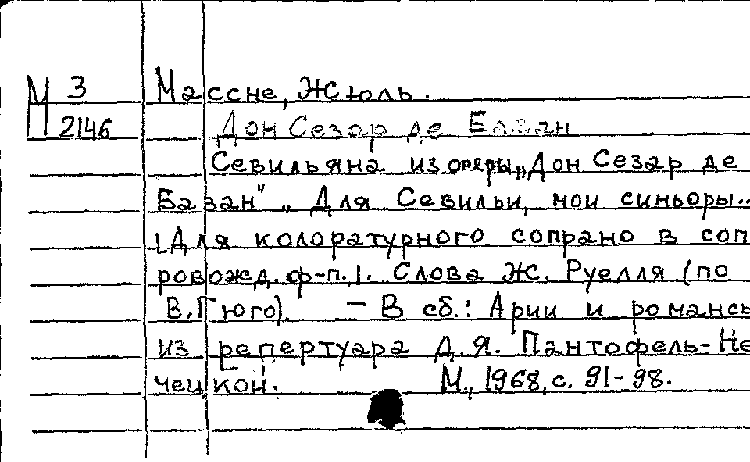 М 3 Массне, Жюль.
2146 Дон Сезар де Базан
Севильяна из оперы „Дон Сезар де
Базан" „ Для Севильи, мои синьоры..
[Для колоратурного сопрано в соп
ровожд. ф-п.]. Слова Ж. Руелля (по
В. Гюго). – В сб.: Арии и романсы
из репертуара Д.Я. Пантофель-Не
чецкой. М., 1968, с. 91-98.